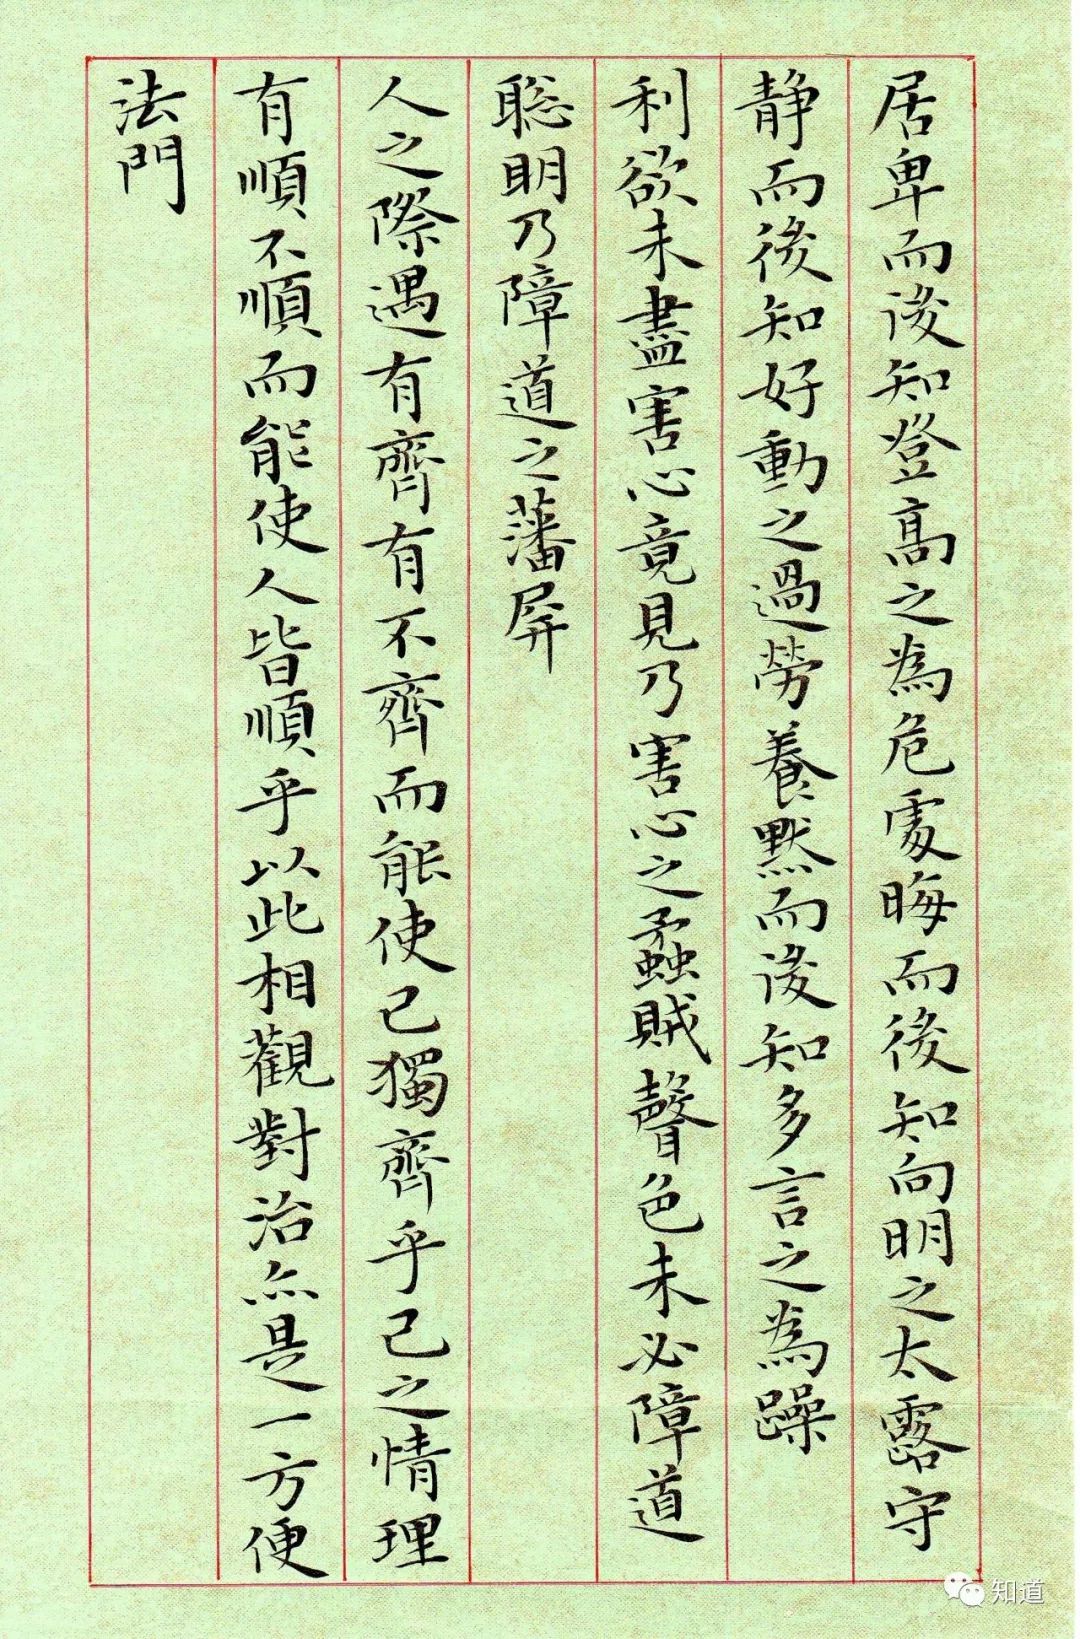 居卑而後知登高之為危處晦而後知向明之太露守
静而後知好動之過勞養默而後知多言之為躁
利欲未盡害心竟見乃害心之蟊賊聲色未必障道
聡明乃障道之藩屏
人之際遇有齊有不齊而能使己獨齊乎己之情理
有順不順而能使人皆順乎以此相觀對治亦是一方便
法門
知道